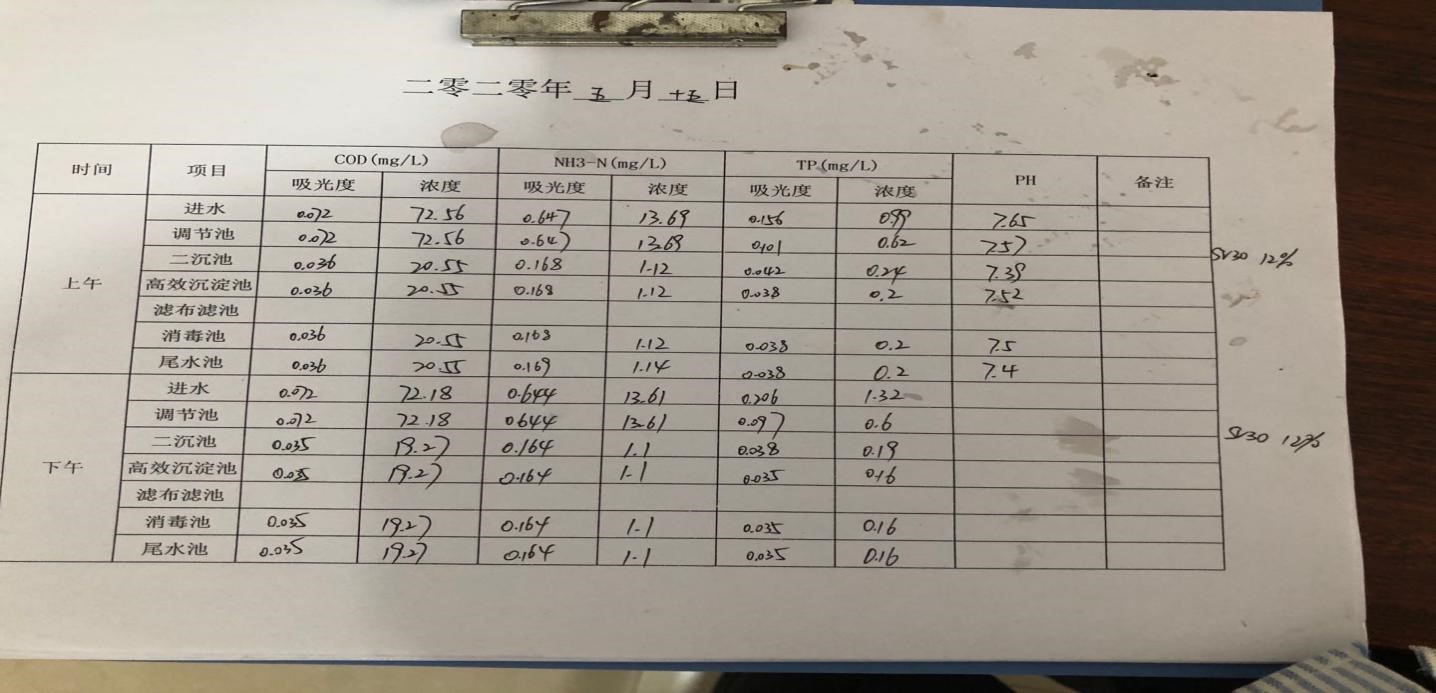 二零二零年 五 月 十五 日
时间 项目 COD(mg/L) NH3-N(mg/L) TP(mg/L) PH 备注
吸光度 浓度 吸光度 浓度 吸光度 浓度
上午
进水 0.072 72.56 0.647 13.69 0.156 0.99 7.65
调节池 0.072 72.56 0.647 13.69 0.101 0.62 7.57
二沉池 0.036 20.55 0.168 1.12 0.042 0.24 7.39 SV30 12%
高效沉淀池 0.036 20.55 0.168 1.12 0.038 0.2 7.52
滤布滤池
消毒池 0.036 20.55 0.168 1.12 0.038 0.2 7.5
尾水池 0.036 20.55 0.169 1.14 0.038 0.2 7.4
下午
进水 0.072 72.18 0.644 13.61 0.206 1.32
调节池 0.072 72.18 0.644 13.61 0.097 0.6
二沉池 0.035 19.27 0.164 1.1 0.038 0.19 SV30 12%
高效沉淀池 0.035 19.27 0.164 1.1 0.035 0.16
滤布滤池
消毒池 0.035 19.27 0.164 1.1 0.035 0.16
尾水池 0.035 19.27 0.164 1.1 0.035 0.16